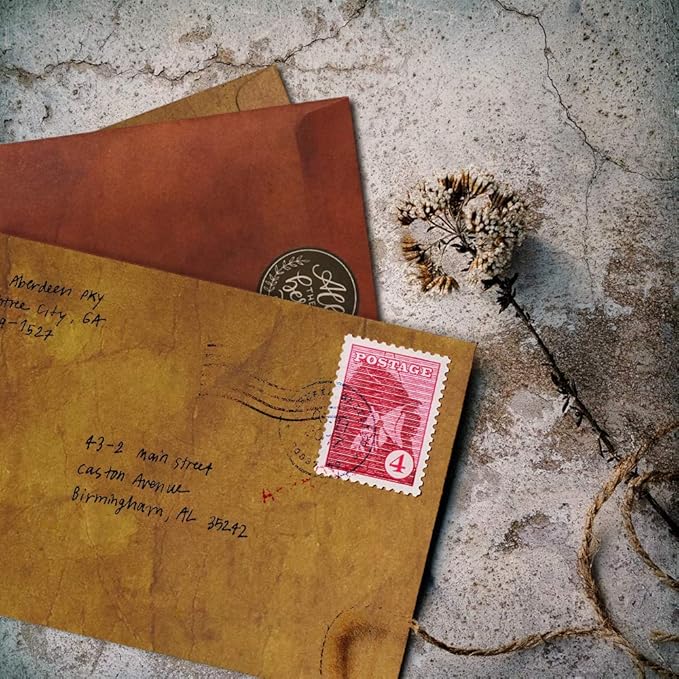 Aberdeen PKY
tree City, GA
9-1527
All
THE
POSTAGE
4
43-2 Main Street
Caston Avenue
Birmingham, AL 35242